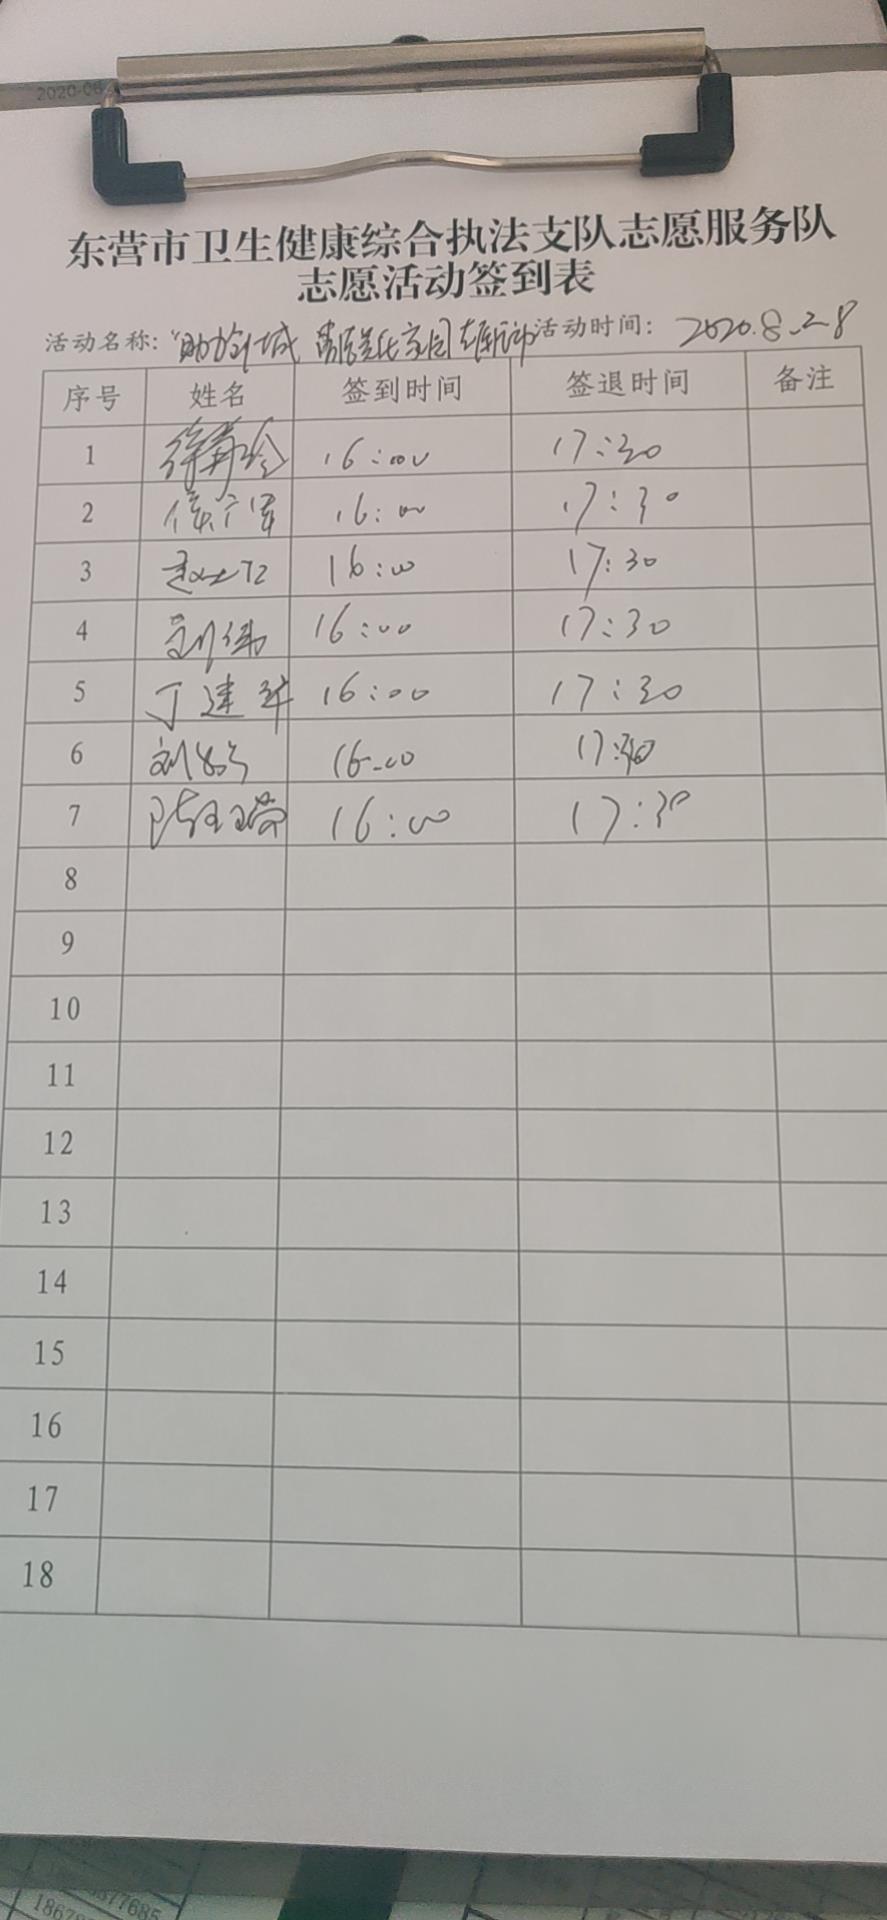 2020-08
东营市卫生健康综合执法支队志愿服务队
志愿活动签到表
活动名称：“助力创城 活动时间： 2020.8.28
序号 姓名 签到时间 签退时间 备注
1 16:00 17:30
2 侯广军 16:00 17:30
3 16:00 17:30
4 刘伟 16:00 17:30
5 丁建华 16:00 17:30
6 刘 16:00 17:30
7 陈 16:00 17:30
8
9
10
11
12
13
14
15
16
17
18
77685
1867